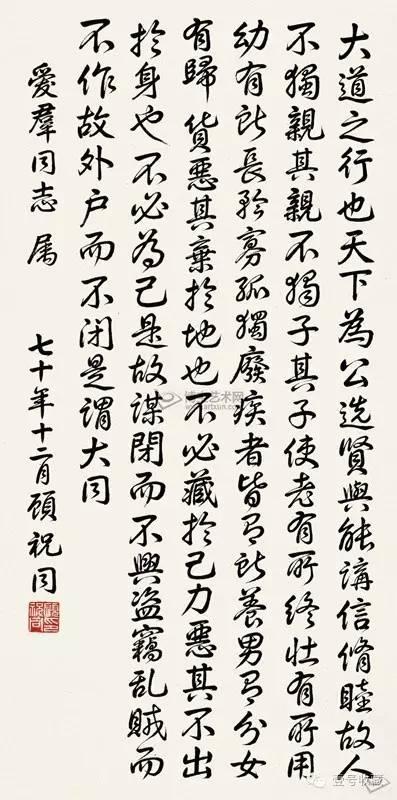 大道之行也天下為公选賢與能講信脩睦故人
不獨親其親不獨子其子使老有所終壮有所用
幼有所長矜寡孤獨廢疾者皆有所養男有分女
有歸貨惡其棄於地也不必藏於己力惡其不出
於身也不必為己是故謀閉而不興盜竊乱賊而
不作故外户而不闭是謂大同
愛羣同志属
七十年十二月顾祝同
艺术网
artxun.com
壹号收藏